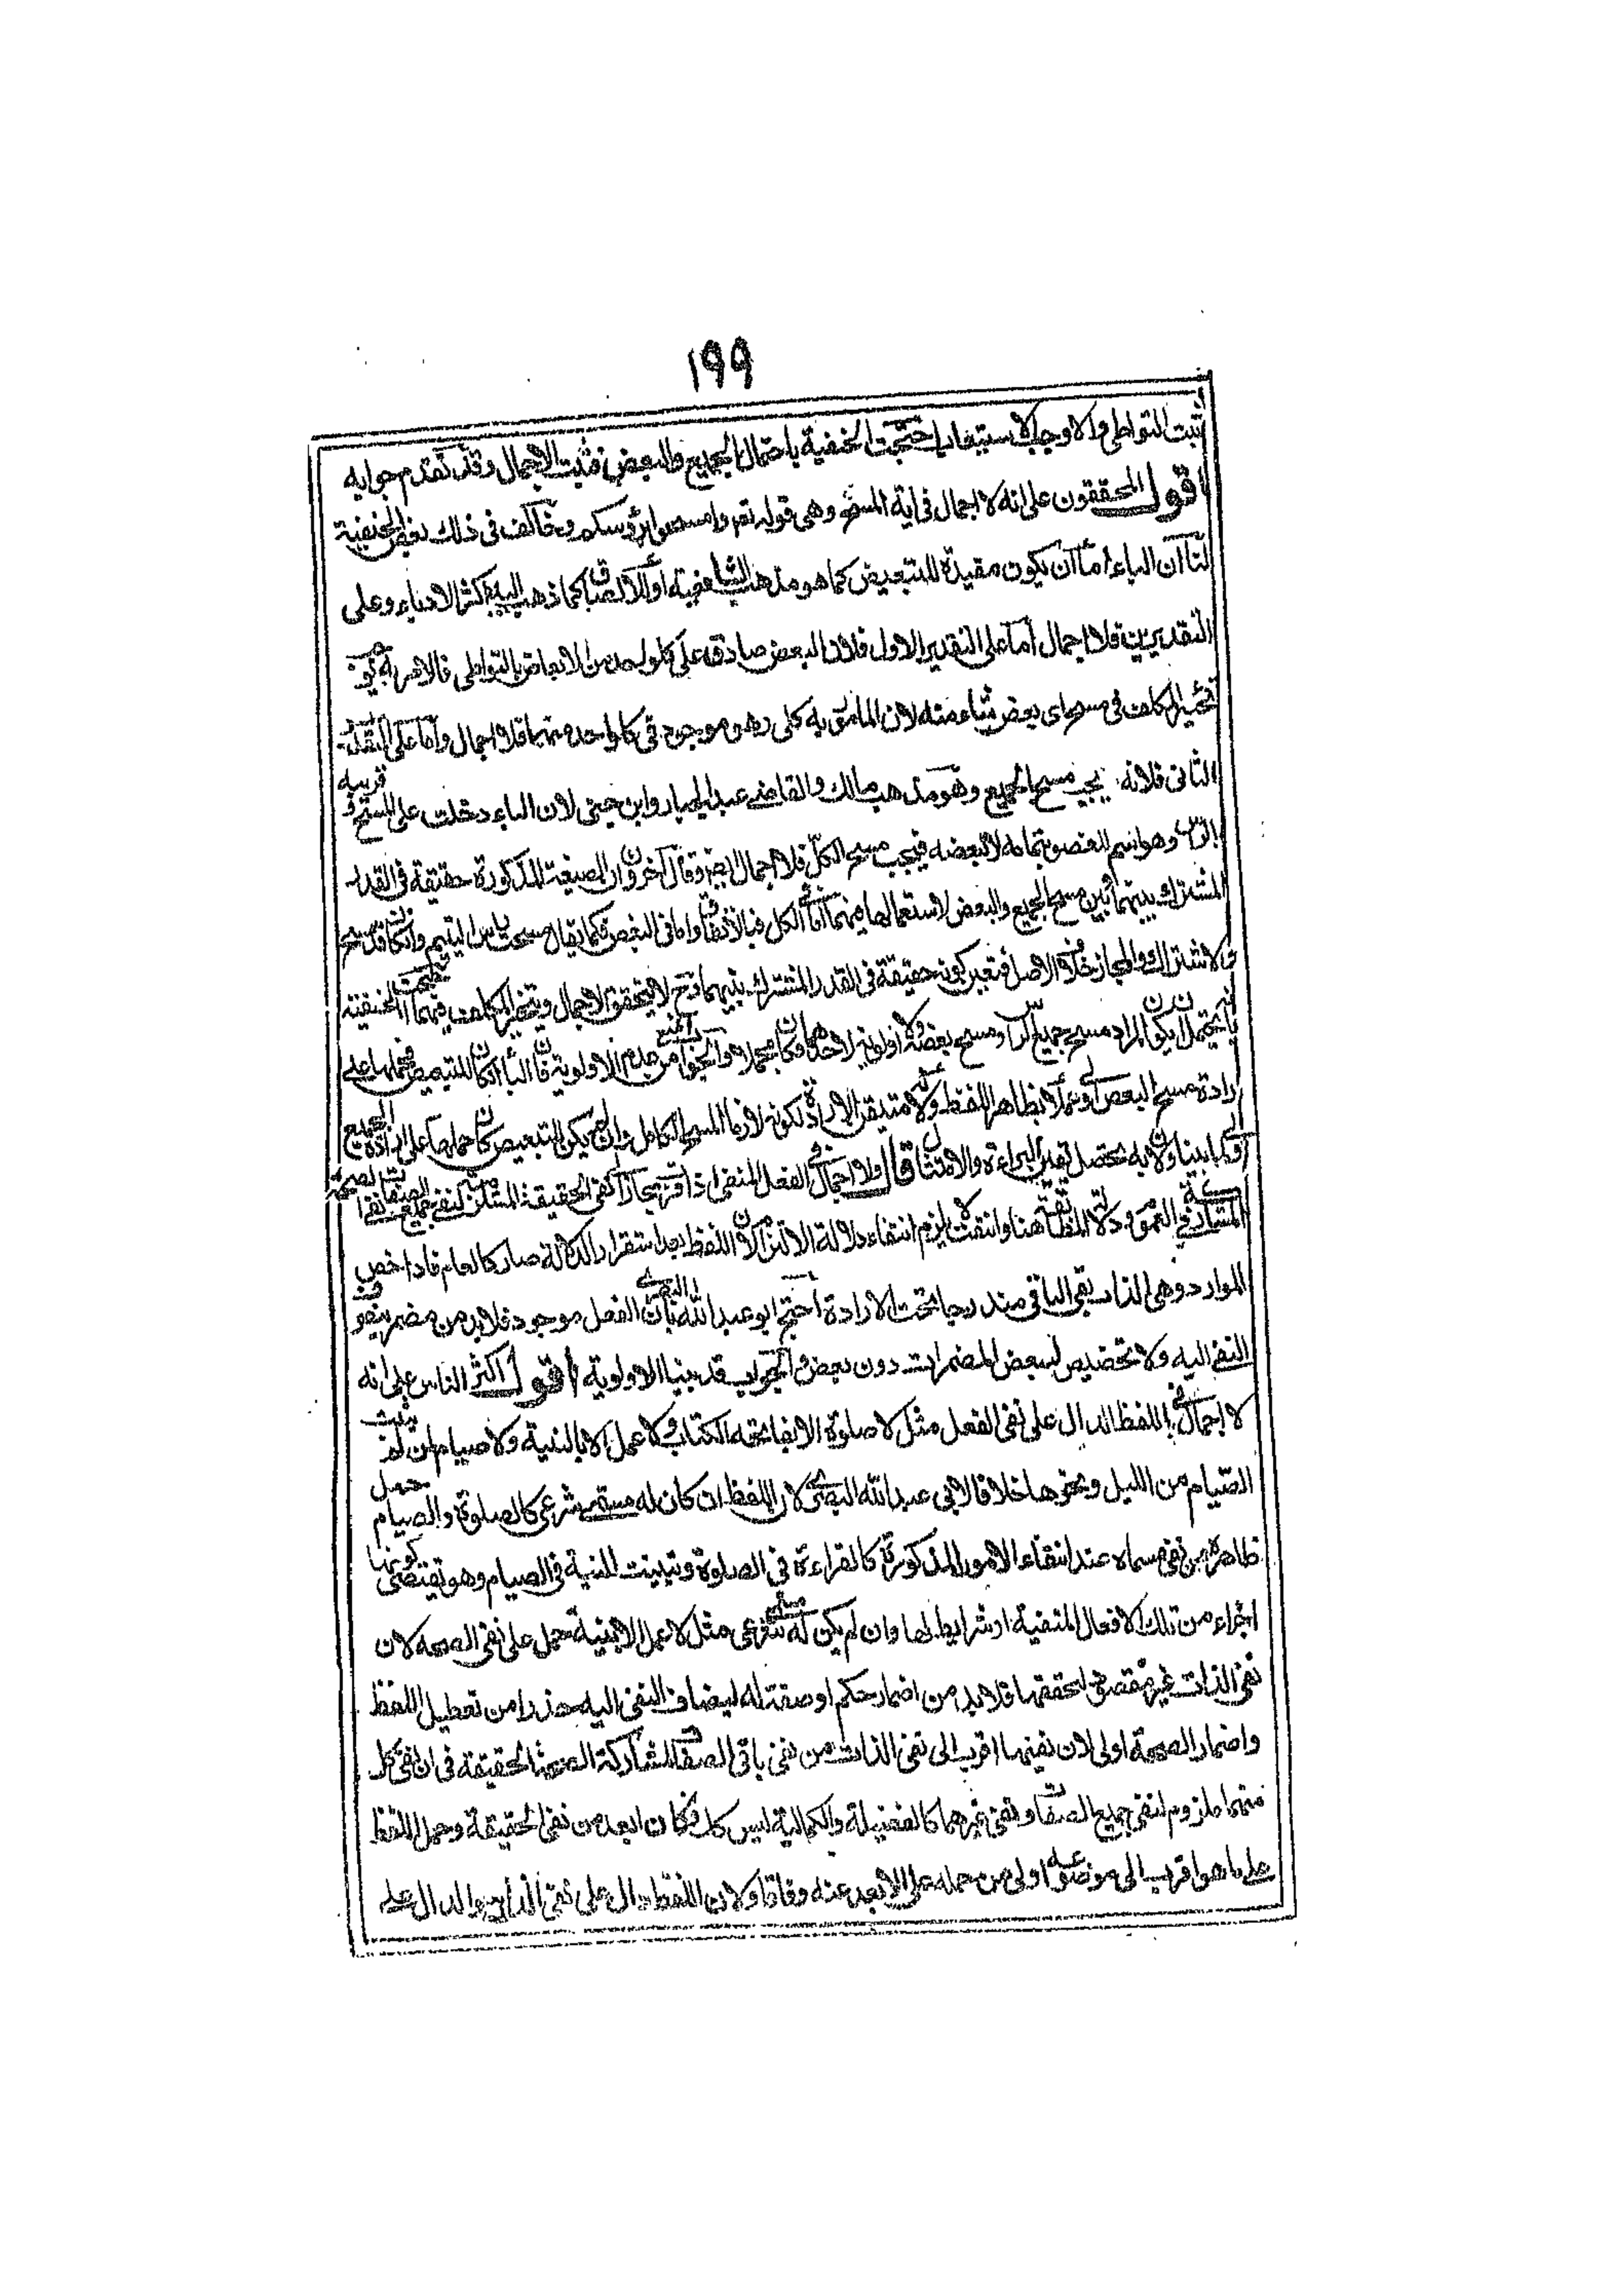 ١٩٩
ثبت التواطي والا وجب الاستيعاب احتجت الحنفية باحتمال الجميع والبعض فثبت الاجمال وقد تقدم جوابه
اقول المحققون على انه لا اجمال في اية المسح وهي قوله تعم وامسحوا برؤسكم وخالف في ذلك بعض الحنفية
لنا ان الباء اما ان يكون مفيدة للتبعيض كما هو مذهب الشافعية او للالصاق كما ذهب اليه اكثر الادباء وعلى
التقديرين فلا اجمال اما على التقدير الاول فلان البعض صادق على كل واحد من الابعاض بالتواطي فالامر به
تخيير المكلف في مسح اي بعض شاء منه لان المامور به كلي وهو موجود في كل واحد منهما فلا اجمال واما على التقدير
الثاني فلانه يجب مسح الجميع وهو مذهب مالك والقاضي عبد الجبار وابن جني لان الباء دخلت على المسح وقرنته
الراس وهو اسم للعضو بتمامه لا لبعضه فيجب مسح الكل فلا اجمال ايض وقال اخرون ان الصيغة المذكورة حقيقة في القدر
المشترك بينهما بين مسح الجميع والبعض لاستعمالها فيهما اما في الكل فبالاتفاق واما في البعض فكما يقال مسحت براس اليتيم وان كان قد مسح
والاشتراك والمجاز خلاف الاصل فتعين كونه حقيقة في القدر المشترك بينهما وح لا يتحقق الاجمال ويتخير المكلف فيهما احتجت الحنفية
بانه يحتمل ان يكون المراد مسح جميع الراس ومسح بعضه ولا اولوية لاحدهما فكان مجملا والجواب المنع من عدم الاولوية فان الباء ان كان للتبعيض فحملها على
ارادة مسح البعض اولى عملا بظاهر اللفظ ولانه متيقن الارادة لكونه لازما لمسح الكل وان لم يكن للتبعيض كان حملها على ارادة الجميع
اولى لما بينا ولان به يحصل تيقن البراءة والامتثال قال ولا اجمال في الفعل المنفي اذ اقرب مجازا الى نفي الحقيقة
اللفظ هنا وانتفت لا يلزم انتفاء دلالة الالتزام لان اللفظ بعد استقرار الدلالة صار كالعام فاذا خص
الموارد وهي الذات بقي الباقي مندرجا تحت الارادة احتج ابو عبد الله البصري بان الفعل موجود فلا بد من مضمر
النفي اليه ولا تخصيص لبعض المضمرات دون بعض والجواب قد بينا الاولوية اقول اكثر الناس على انه
لا اجمال في اللفظ الدال على نفي الفعل مثل لا صلوة الا بفاتحة الكتاب ولا عمل الا بالنية ولا صيام لمن لم يبيت
الصيام من الليل ونحوها خلافا لابي عبد الله البصري لان اللفظ ان كان له مسمى شرعي كالصلوة والصيام حمل
ظاهره من نفي مسماه عند انتفاء الامور المذكورة كالقراءة في الصلوة وتبييت النية في الصيام وهو يقتضي كونها
اجزاء من تلك الافعال المنفية او شرايط لها وان لم يكن له مسمى شرعي مثل لا عمل الا بنية حمل على نفي الصحه لان
نفي الذات غير مقصود لتحققها فلا بد من اضمار حكم او صفة له ليضاف النفي اليه حذرا من تعطيل اللفظ
واضمار الصحة اولى لان نفيها اقرب الى نفي الذات من نفي باقي الصفات لمشاركة الصحة الحقيقة في ان نفي كل
منهما ملزوم لنفي جميع الصفات ونفي غيرهما كالفضيلة والكمالية ليس كك فكان ابعد من نفي الحقيقة وحمل اللفظ
على ما هو اقرب الى موضوعه اولى من حمله على الابعد عنه وفاقا ولان اللفظ دال على نفي الذات والدال على